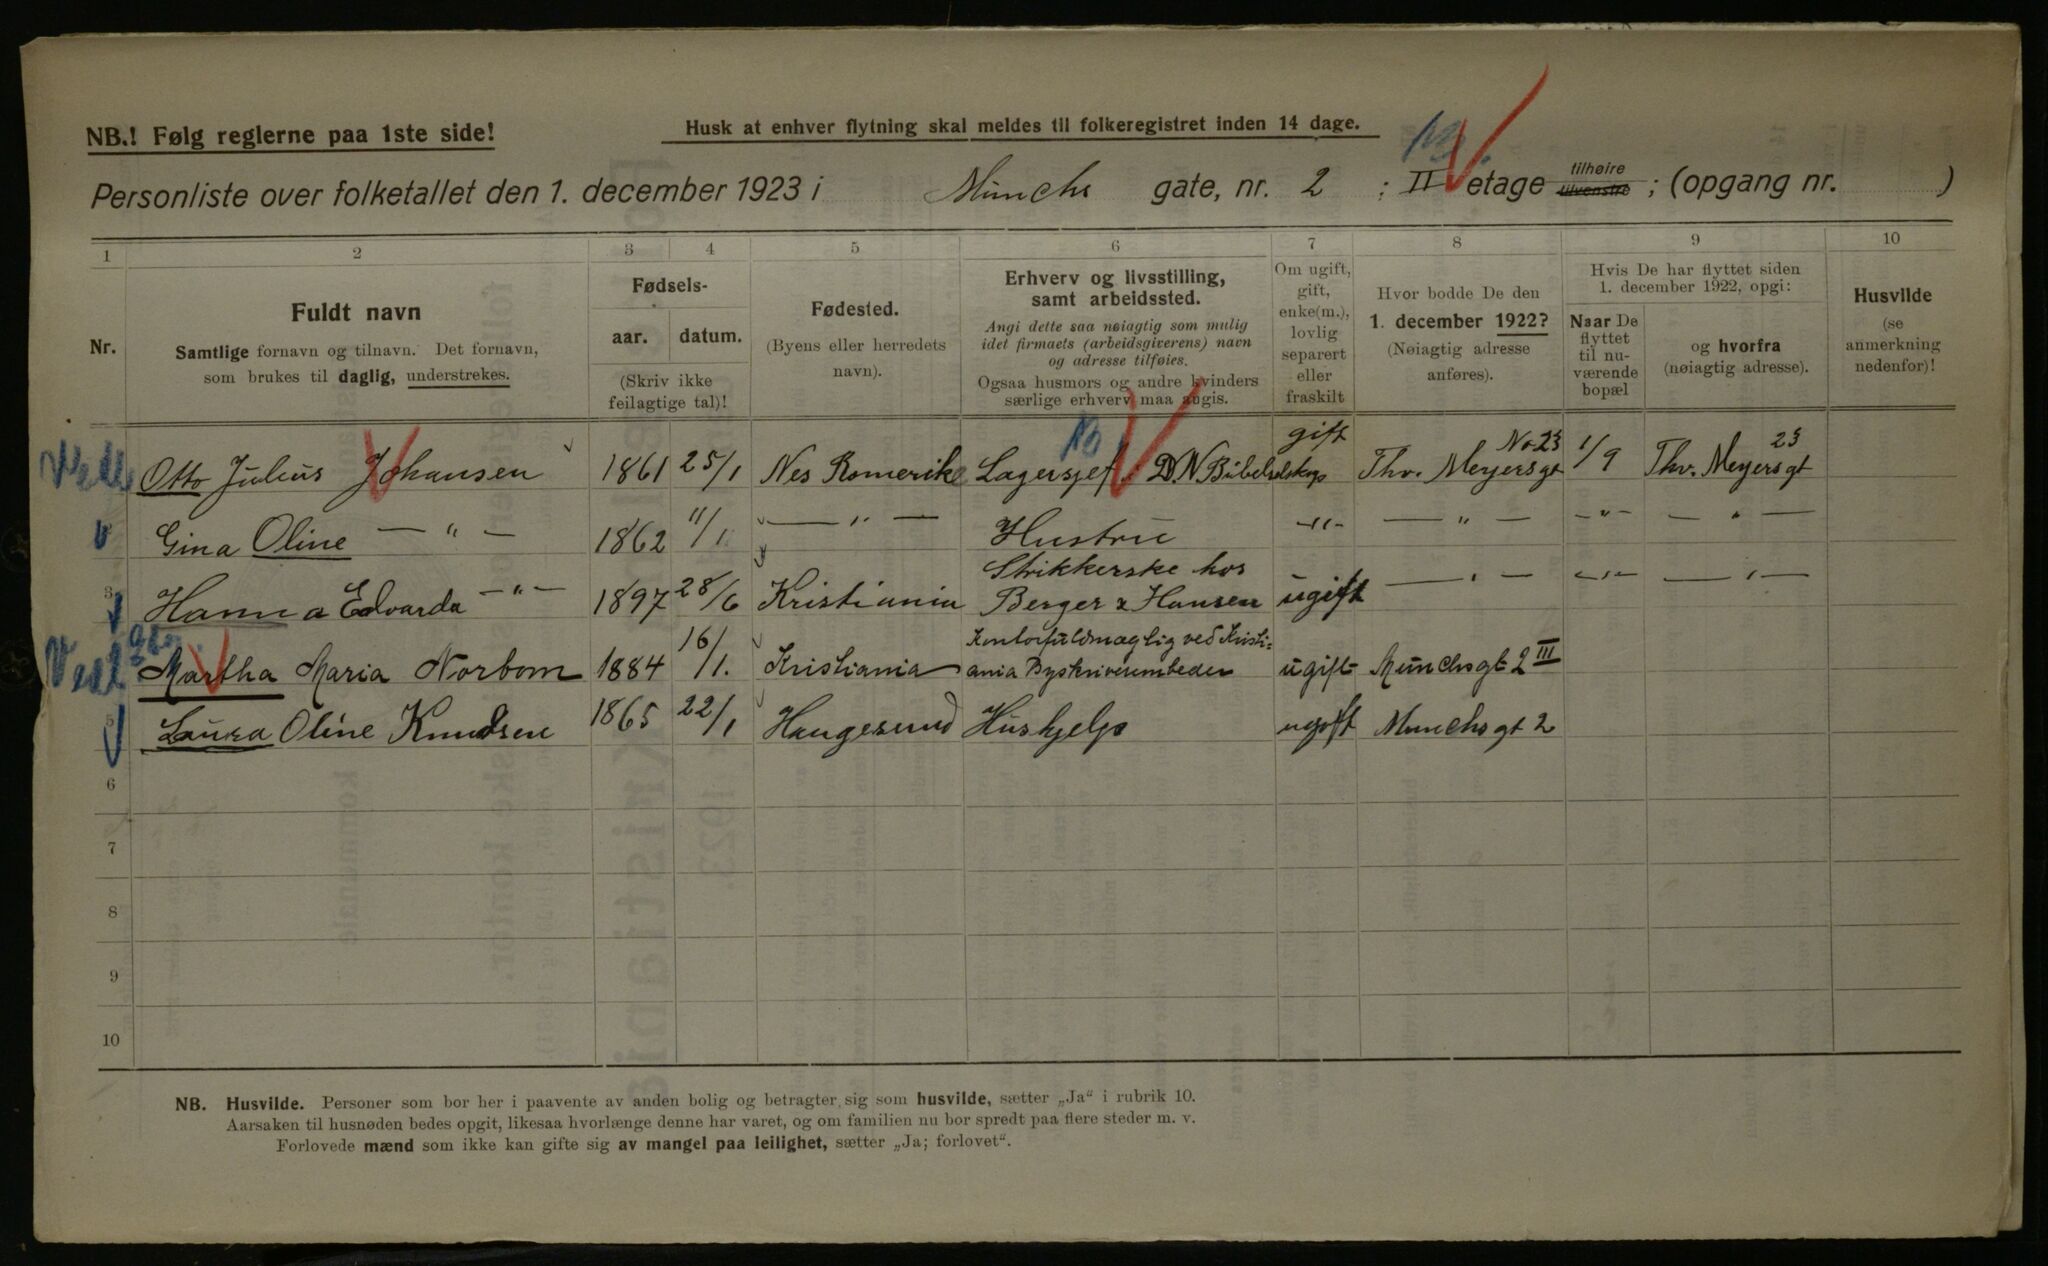 NB.! Følg reglerne paa 1ste side!
Husk at enhver flytning skal meldes til folkeregistret inden 14 dage.
Personliste over folketallet den 1. december 1923 i Munchs gate, nr. 2 ; II etage tilhøire tilvenstre ; (opgang nr. )
1 2 3 4 5 6 7 8 9 10
Nr.
Fuldt navn
Samtlige fornavn og tilnavn. Det fornavn,
som brukes til daglig, understrekes.
Fødsels-
aar. datum.
(Skriv ikke
feilagtige tal)!
Fødested.
(Byens eller herredets
navn).
Erhverv og livsstilling,
samt arbeidssted.
Angi dette saa nøiagtig som mulig
idet firmaets (arbeidsgiverens) navn
og adresse tilføies.
Ogsaa husmors og andre kvinders
særlige erhverv maa angis.
Om ugift,
gift,
enke(m.),
lovlig
separert
eller
fraskilt
Hvor bodde De den
1. december 1922?
(Nøiagtig adresse
anføres).
Hvis De har flyttet siden
1. december 1922, opgi:
Naar De
flyttet
til nu-
værende
bopæl
og hvorfra
(nøiagtig adresse).
Husvilde
(se
anmerkning
nedenfor)!
Otto Julius Johansen 1861 25/1 Nes Romerike Lagersjef i D.N. Bibelselskap gift Thv. Meyersgt No 23 1/9 Thv. Meyersgt 23
Gina Oline — " — 1862 11/1 — " — Hustru -"- — " — -"- — " —
3 Hanna Edvarda — " — 1897 28/6 Kristiania Strikkerske hos
Berger & Hansen ugift — " — -"- — " —
Martha Maria Norbom 1884 16/1. Kristiania Kontorfuldmægtig ved Kristi-
ania Byskriverembeder ugift Munchsgt 2 III
5 Laura Oline Knudsen 1865 22/1 Haugesund Hushjelp ugift Munchsgt 2
6
7
8
9
10
NB. Husvilde. Personer som bor her i paavente av anden bolig og betragter sig som husvilde, sætter „Ja“ i rubrik 10.
Aarsaken til husnøden bedes opgit, likesaa hvorlænge denne har varet, og om familien nu bor spredt paa flere steder m. v.
Forlovede mænd som ikke kan gifte sig av mangel paa leilighet, sætter „Ja; forlovet“.